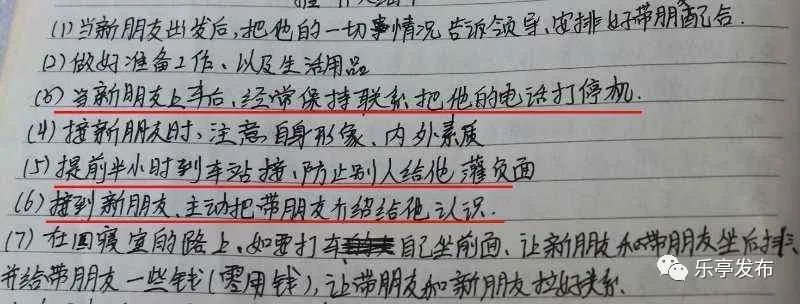 (1)当新朋友出发后,把他的一切事情况告诉领导,安排好带朋配合.
(2)做好准备工作、以及生活用品
(3)当新朋友上车后、经常保持联系把他的电话打停机.
(4)接新朋友时、注意自身形象、内外素质
(5)提前半小时到车站接、防止别人给他灌负面
(6)接到新朋友、主动把带朋友介绍给他认识.
(7)在回寝室的路上、如要打车自己坐前面、让新朋友和带朋友坐后排、
并给带朋友一些钱(零用钱),让带朋友和新朋友拉好关系.
乐亭发布